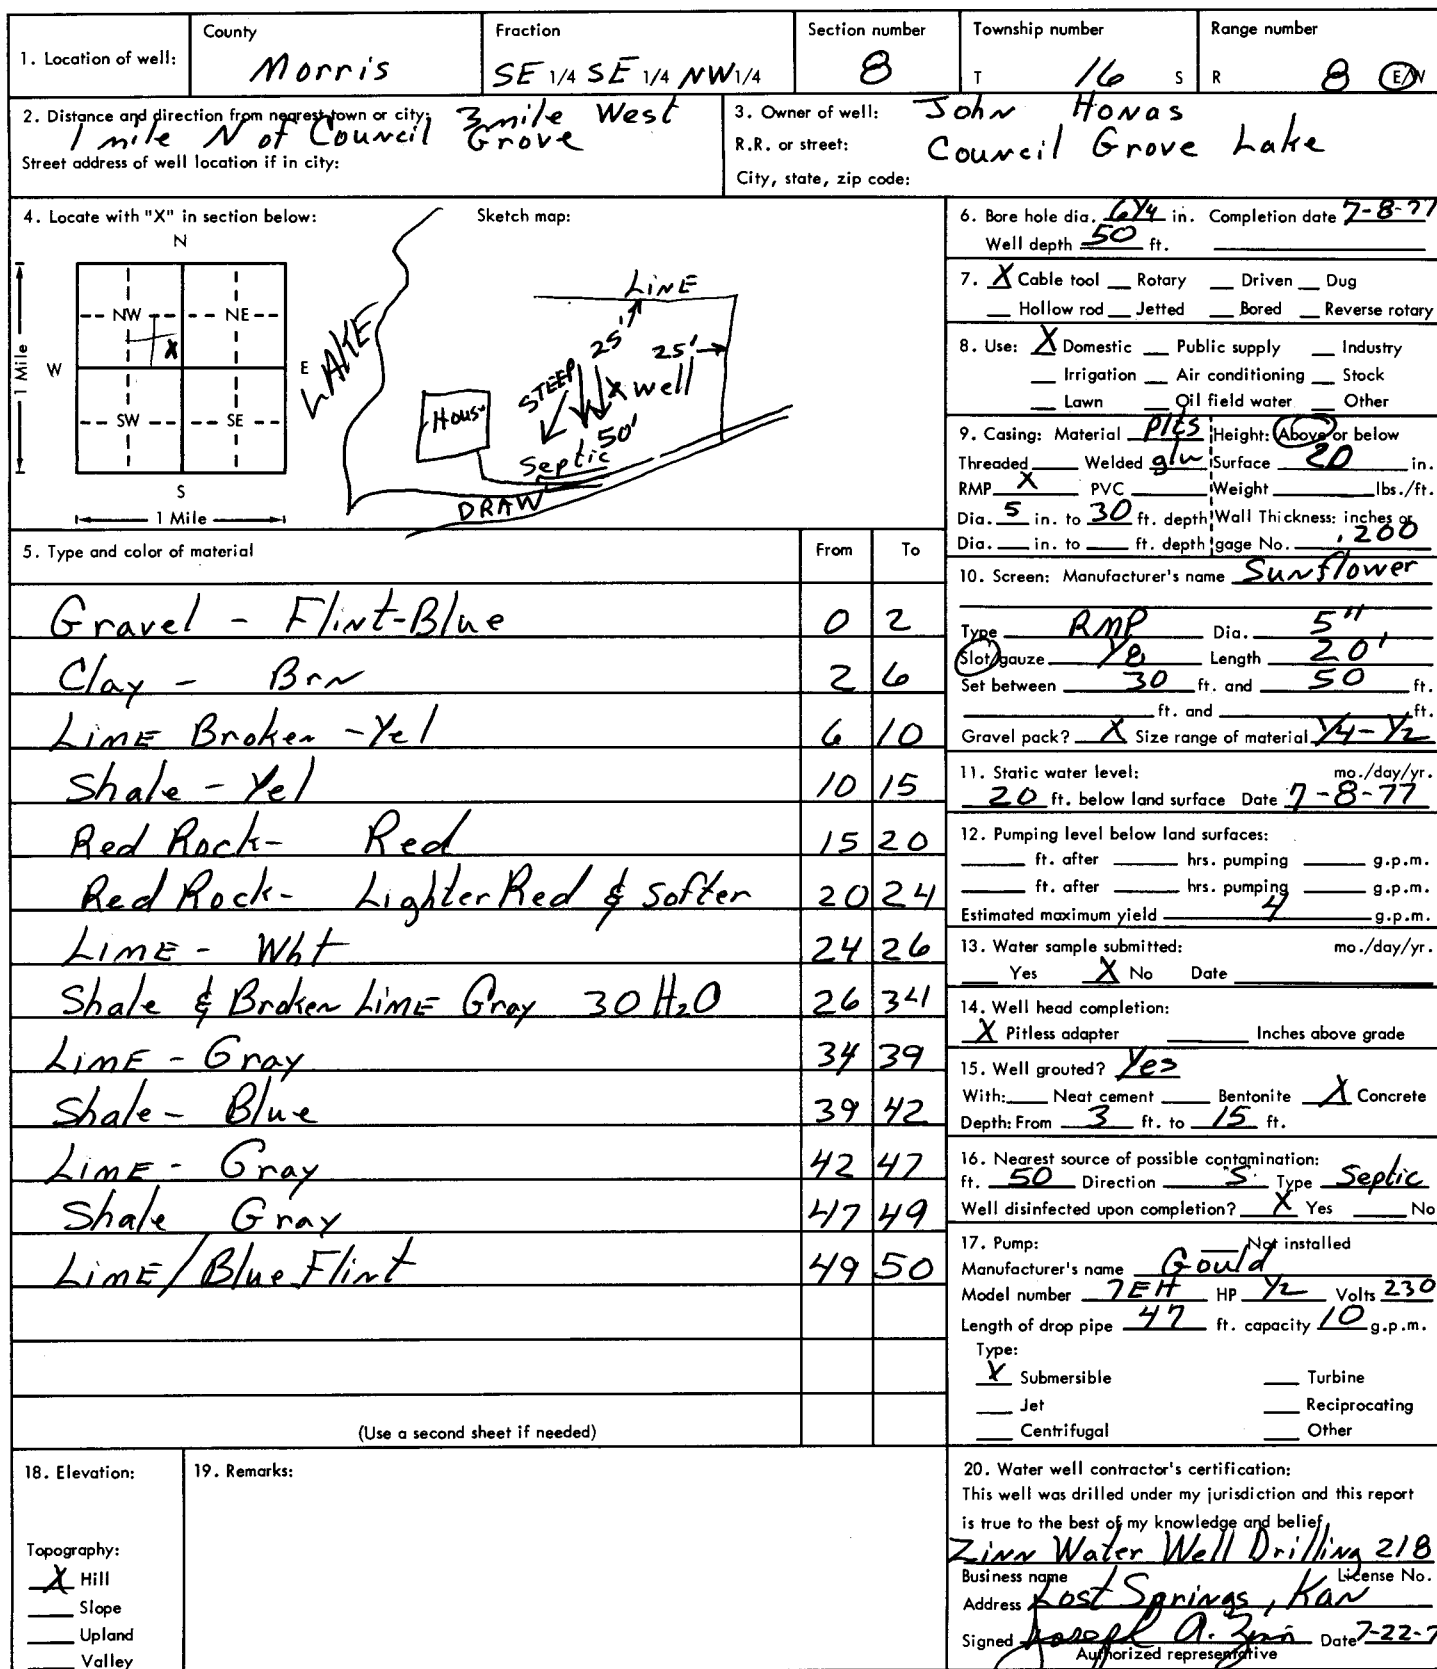 1. Location of well: County Morris Fraction SE 1/4 SE 1/4 NW 1/4 Section number 8 Township number T 16 S Range number R 8 E/W
2. Distance and direction from nearest town or city: 3 mile West
1 mile N of Council Grove
Street address of well location if in city:
3. Owner of well: John Honas
R.R. or street: Council Grove Lake
City, state, zip code:
4. Locate with "X" in section below:
N
NW NE
X
W E
SW SE
S
1 Mile
1 Mile
Sketch map:
LAKE
LINE
25'
25'
STEEP
X well
House
50'
Septic
DRAW
5. Type and color of material From To
Gravel - Flint-Blue 0 2
Clay - Brn 2 6
LIME Broken - Yel 6 10
Shale - Yel 10 15
Red Rock - Red 15 20
Red Rock - Lighter Red & Softer 20 24
LIME - Wht 24 26
Shale & Broken LIME Gray 30 H2O 26 34
LIME - Gray 34 39
Shale - Blue 39 42
LIME - Gray 42 47
Shale Gray 47 49
LIME/Blue Flint 49 50
(Use a second sheet if needed)
6. Bore hole dia. 6 1/4 in. Completion date 7-8-77
Well depth 50 ft.
7. X Cable tool Rotary Driven Dug
Hollow rod Jetted Bored Reverse rotary
8. Use: X Domestic Public supply Industry
Irrigation Air conditioning Stock
Lawn Oil field water Other
9. Casing: Material plts Height: Above or below
Threaded Welded glu Surface 20 in.
RMP X PVC Weight lbs./ft.
Dia. 5 in. to 30 ft. depth Wall Thickness: inches or
Dia. in. to ft. depth gage No. .200
10. Screen: Manufacturer's name Sunflower
Type RMP Dia. 5"
Slot/gauze 1/8 Length 20'
Set between 30 ft. and 50 ft.
ft. and ft.
Gravel pack? X Size range of material 1/4 - 1/2
11. Static water level: mo./day/yr.
20 ft. below land surface Date 7-8-77
12. Pumping level below land surfaces:
ft. after hrs. pumping g.p.m.
ft. after hrs. pumping g.p.m.
Estimated maximum yield 4 g.p.m.
13. Water sample submitted: mo./day/yr.
Yes X No Date
14. Well head completion:
X Pitless adapter Inches above grade
15. Well grouted? Yes
With: Neat cement Bentonite X Concrete
Depth: From 3 ft. to 15 ft.
16. Nearest source of possible contamination:
ft. 50 Direction S Type Septic
Well disinfected upon completion? X Yes No
17. Pump: Not installed
Manufacturer's name Gould
Model number 7EH HP 1/2 Volts 230
Length of drop pipe 47 ft. capacity 10 g.p.m.
Type:
X Submersible Turbine
Jet Reciprocating
Centrifugal Other
18. Elevation:
Topography:
X Hill
Slope
Upland
Valley
19. Remarks:
20. Water well contractor's certification:
This well was drilled under my jurisdiction and this report
is true to the best of my knowledge and belief.
Zinn Water Well Drilling 218
Business name License No.
Address Lost Springs, Kan
Signed Joseph A. Zinn Date 7-22-7
Authorized representative